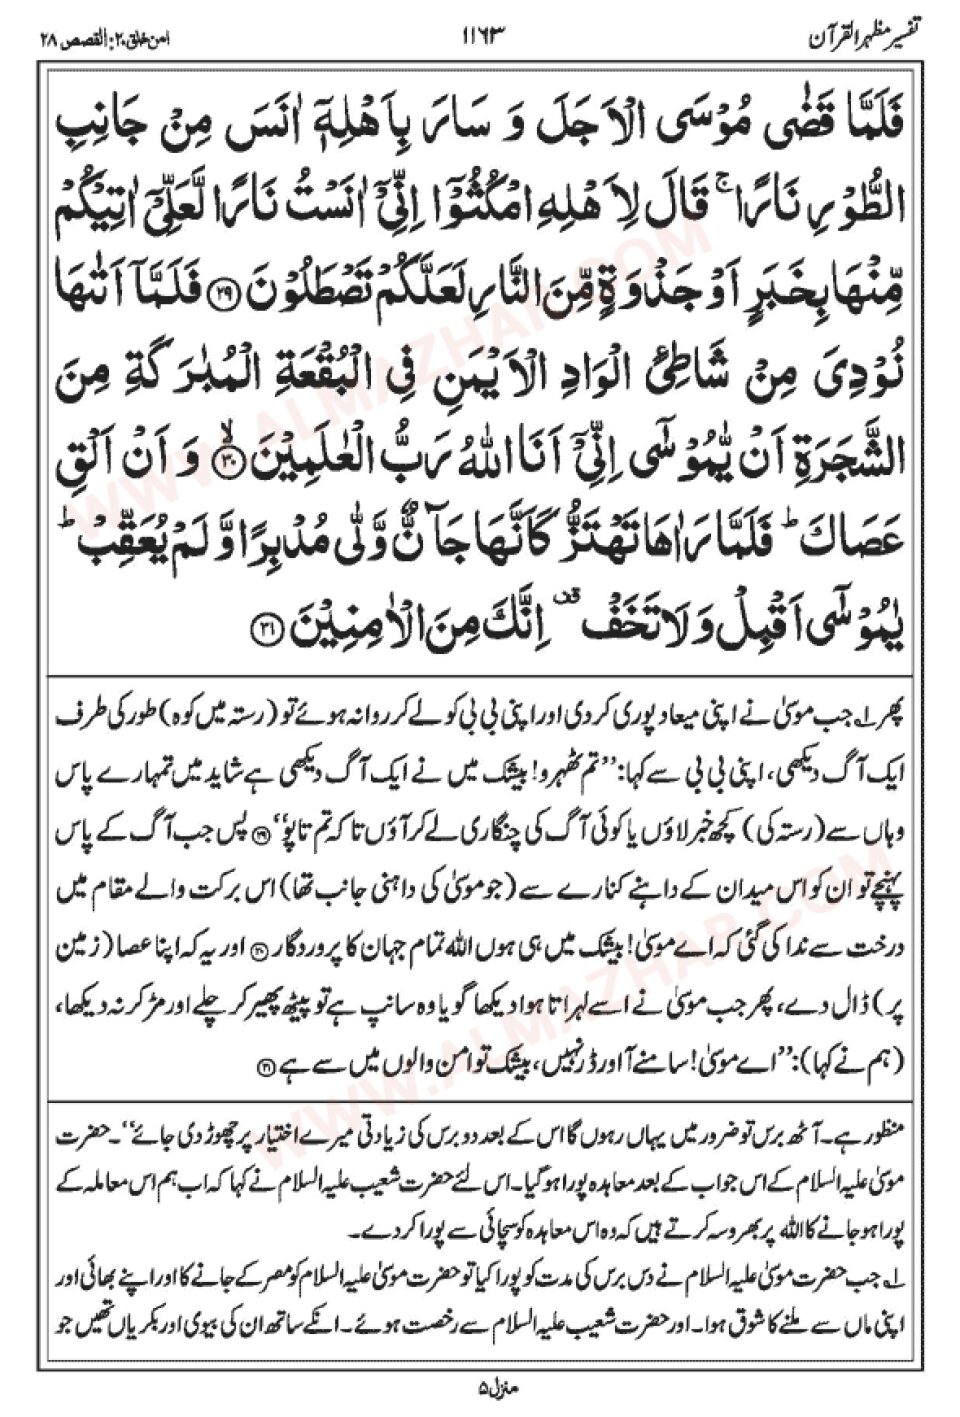 تفسیر مظہر القرآن
۱۱۶۳
امن خلق ۲۰: القصص ۲۸
فَلَمَّا قَضٰى مُوْسَى الْاَجَلَ وَ سَارَ بِاَهْلِهٖۤ اٰنَسَ مِنْ جَانِبِ
الطُّوْرِ نَارًا ۚ قَالَ لِاَهْلِهِ امْكُثُوْۤا اِنِّیْۤ اٰنَسْتُ نَارًا لَّعَلِّیْۤ اٰتِیْكُمْ
مِّنْهَا بِخَبَرٍ اَوْ جَذْوَةٍ مِّنَ النَّارِ لَعَلَّكُمْ تَصْطَلُوْنَ ﴿۲۹﴾ فَلَمَّاۤ اَتٰىهَا
نُوْدِیَ مِنْ شَاطِئِ الْوَادِ الْاَیْمَنِ فِی الْبُقْعَةِ الْمُبٰرَكَةِ مِنَ
الشَّجَرَةِ اَنْ یّٰمُوْسٰۤى اِنِّیْۤ اَنَا اللّٰهُ رَبُّ الْعٰلَمِیْنَ ﴿۳۰﴾ۙ وَ اَنْ اَلْقِ
عَصَاكَ ؕ فَلَمَّا رَاٰهَا تَهْتَزُّ كَاَنَّهَا جَآنٌّ وَّلّٰى مُدْبِرًا وَّ لَمْ یُعَقِّبْ ؕ
یٰمُوْسٰۤى اَقْبِلْ وَ لَا تَخَفْ ۫ اِنَّكَ مِنَ الْاٰمِنِیْنَ ﴿۳۱﴾
پھر ۱؎ جب موسیٰ نے اپنی میعاد پوری کردی اور اپنی بی بی کو لے کر روانہ ہوئے تو (رستہ میں کوہ) طور کی طرف
ایک آگ دیکھی، اپنی بی بی سے کہا: ’’تم ٹھہرو! بیشک میں نے ایک آگ دیکھی ہے شاید میں تمہارے پاس
وہاں سے (رستہ کی) کچھ خبر لاؤں یا کوئی آگ کی چنگاری لے کر آؤں تا کہ تم تاپو‘‘ ﴿۲۹﴾ پس جب آگ کے پاس
پہنچے تو ان کو اس میدان کے داہنے کنارے سے (جو موسیٰ کی داہنی جانب تھا) اس برکت والے مقام میں
درخت سے ندا کی گئی کہ اے موسیٰ! بیشک میں ہی ہوں اللہ تمام جہان کا پروردگار ﴿۳۰﴾ اور یہ کہ اپنا عصا (زمین
پر) ڈال دے، پھر جب موسیٰ نے اسے لہراتا ہوا دیکھا گویا وہ سانپ ہے تو پیٹھ پھیر کر چلے اور مڑ کر نہ دیکھا،
(ہم نے کہا): ’’اے موسیٰ! سامنے آ اور ڈر نہیں، بیشک تو امن والوں میں سے ہے ﴿۳۱﴾
منظور ہے۔ آٹھ برس تو ضرور میں یہاں رہوں گا اس کے بعد دو برس کی زیادتی میرے اختیار پر چھوڑ دی جائے‘‘۔ حضرت
موسیٰ علیہ السلام کے اس جواب کے بعد معاہدہ پورا ہوگیا۔ اس لئے حضرت شعیب علیہ السلام نے کہا کہ اب ہم اس معاملہ کے
پورا ہو جانے کا اللہ پر بھروسہ کرتے ہیں کہ وہ اس معاہدہ کو سچائی سے پورا کر دے۔
۱؎ جب حضرت موسیٰ علیہ السلام نے دس برس کی مدت کو پورا کیا تو حضرت موسیٰ علیہ السلام کو مصر کے جانے کا اور اپنے بھائی اور
اپنی ماں سے ملنے کا شوق ہوا۔ اور حضرت شعیب علیہ السلام سے رخصت ہوئے۔ انکے ساتھ ان کی بیوی اور بکریاں تھیں جو
منزل ۵
WWW.ALMAZHAR.COM
WWW.ALMAZHAR.COM